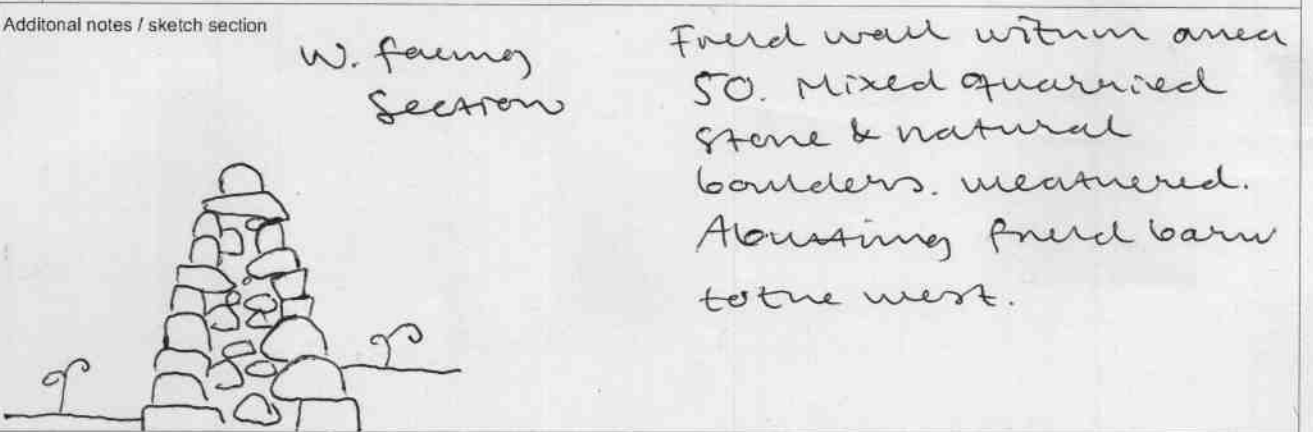 Additonal notes / sketch section
W. facing
Section
Field wall within area
50. Mixed quarried
stone & natural
boulders. weathered.
Abutting field barn
to the west.